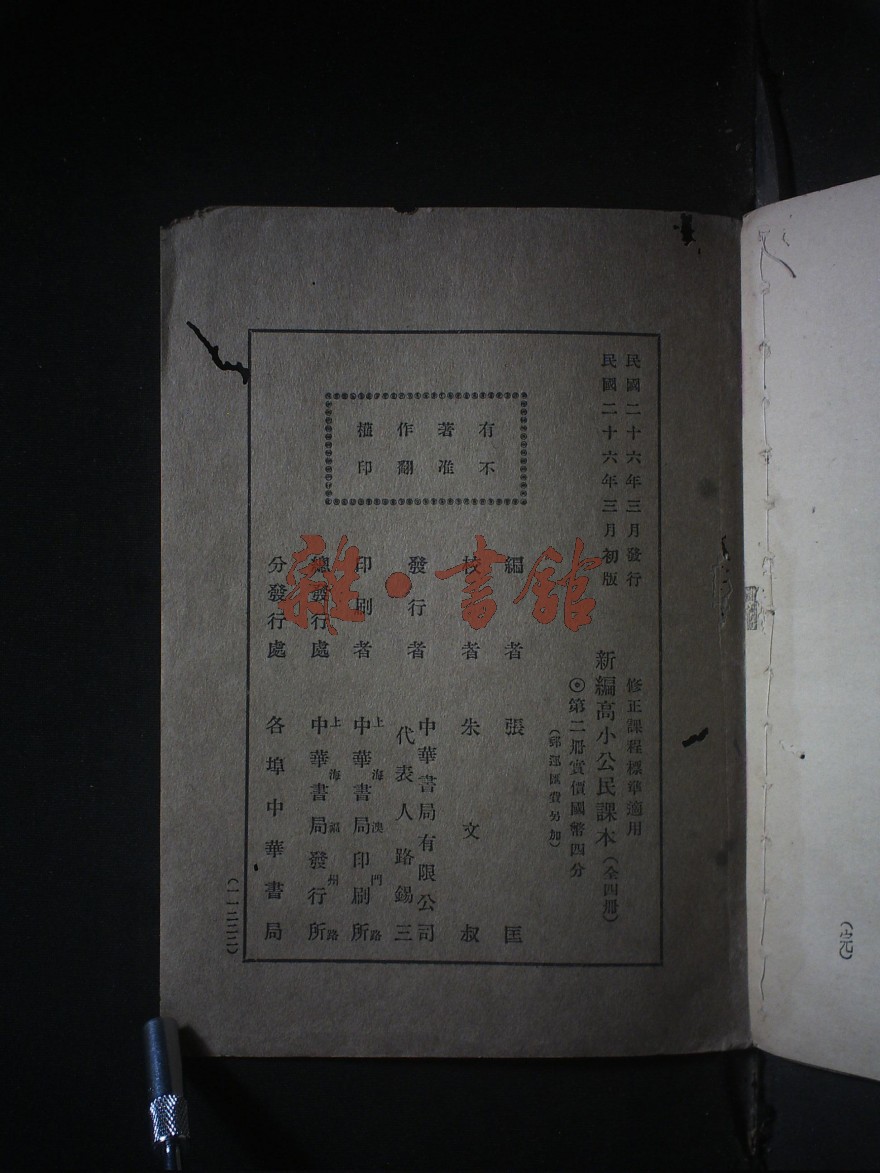 民國二十六年三月發行
民國二十六年三月初版
修正課程標準適用
新編高小公民課本(全四册)
◎第二册實價國幣四分
(郵運匯費另加)
有著作權
不准翻印
編者 張匡
校者 朱文叔
發行者 中華書局有限公司
代表人路錫三
印刷者 上海澳門路
中華書局印刷所
總發行處 上海福州路
中華書局發行所
分發行處 各埠中華書局
(一一二二二)
雜·書館
(完)